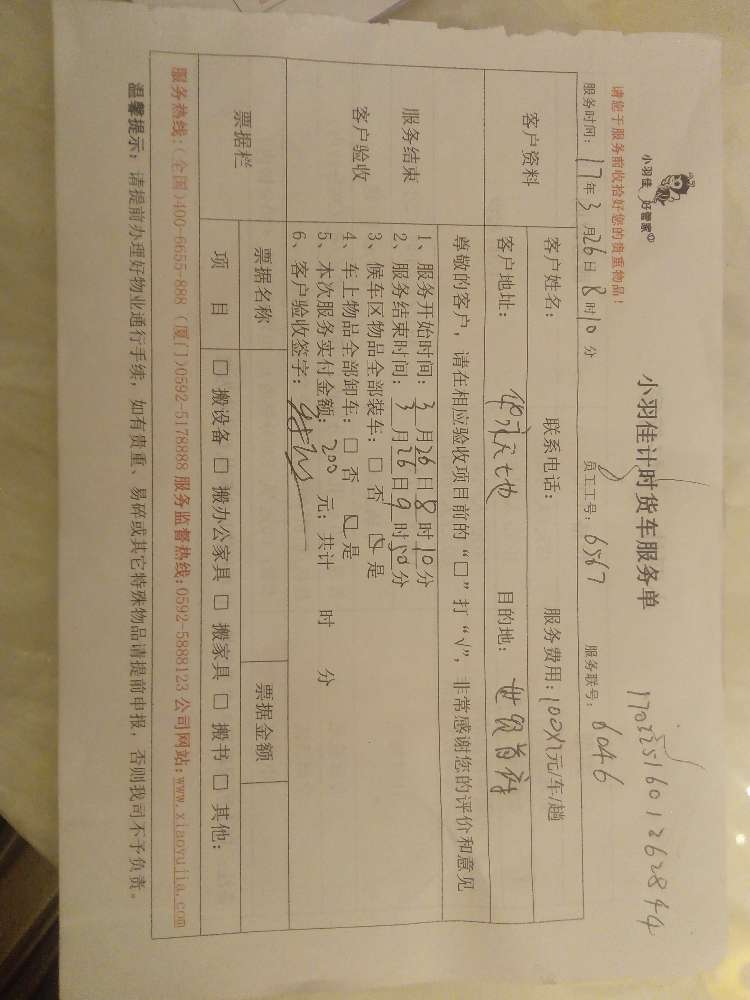 小羽佳 好管家©
小羽佳计时货车服务单
请您于服务前收拾好您的贵重物品！
服务时间：17年3月26日8时10分 员工工号：6567 服务联号：6046
客户资料
客户姓名： 联系电话： 服务费用：100X2元/车/趟
客户地址： 目的地：
服务结束
客户验收
尊敬的客户，请在相应验收项目前的“□”打“√”，非常感谢您的评价和意见
1、服务开始时间：3月26日8时10分
2、服务结束时间：3月26日9时50分
3、候车区物品全部装车：□ 否 ☑ 是
4、车上物品全部卸车：□ 否 ☑ 是
5、本次服务实付金额：200元；共计 时 分
6、客户验收签字：
票据栏
票据名称 票据金额
项 目 □ 搬设备 □ 搬办公家具 □ 搬家具 □ 搬书 □ 其他：
服务热线：(全国)400-6655-888 (厦门)0592-5178888 服务监督热线：0592-5888123 公司网站：www.xiaoyujia.com
温馨提示：请提前办理好物业通行手续，如有贵重、易碎或其它特殊物品请提前申报，否则我司不予负责。